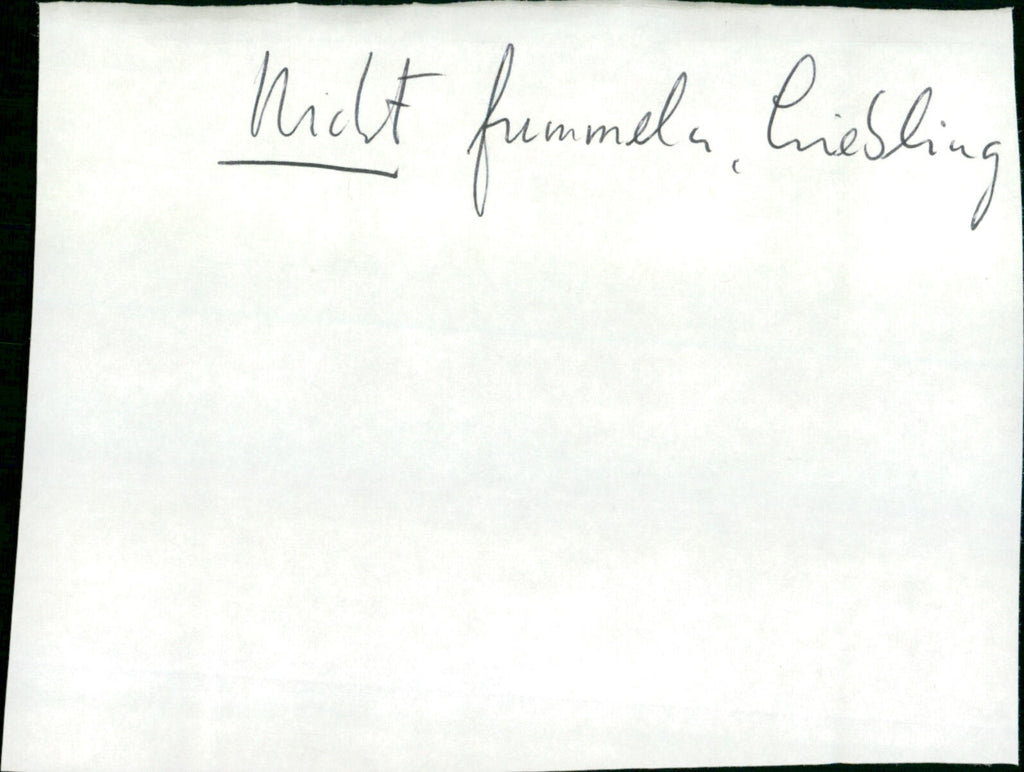 Nicht fummeln, Liebling